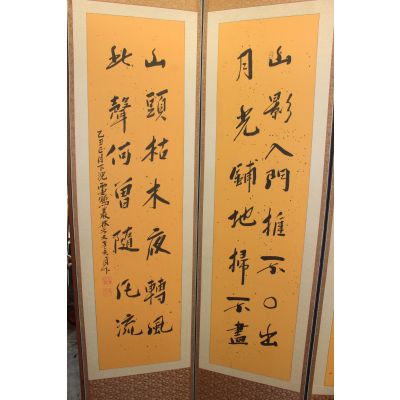 山影入門推不〇出
月光鋪地掃不盡
山頭枯木夜轉風
此聲何曾隨流
乙丑正月下浣